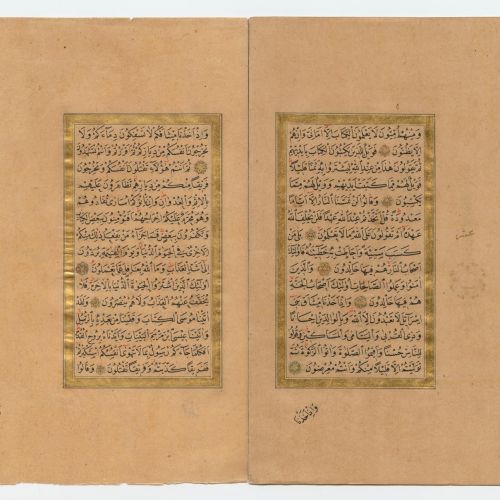 وَمِنْهُمْ أُمِّيُّونَ لَا يَعْلَمُونَ الْكِتَابَ إِلَّا أَمَانِيَّ وَإِنْ هُمْ
إِلَّا يَظُنُّونَ فَوَيْلٌ لِلَّذِينَ يَكْتُبُونَ الْكِتَابَ بِأَيْدِيهِمْ
ثُمَّ يَقُولُونَ هٰذَا مِنْ عِنْدِ اللَّهِ لِيَشْتَرُوا بِهِ ثَمَنًا قَلِيلًا
فَوَيْلٌ لَهُمْ مِمَّا كَتَبَتْ أَيْدِيهِمْ وَوَيْلٌ لَهُمْ مِمَّا
يَكْسِبُونَ وَقَالُوا لَنْ تَمَسَّنَا النَّارُ إِلَّا أَيَّامًا
مَعْدُودَةً قُلْ أَتَّخَذْتُمْ عِنْدَ اللَّهِ عَهْدًا فَلَنْ يُخْلِفَ اللَّهُ
عَهْدَهُ أَمْ تَقُولُونَ عَلَى اللَّهِ مَا لَا تَعْلَمُونَ بَلَى مَنْ
كَسَبَ سَيِّئَةً وَأَحَاطَتْ بِهِ خَطِيئَتُهُ فَأُولٰئِكَ
أَصْحَابُ النَّارِ هُمْ فِيهَا خَالِدُونَ وَالَّذِينَ
آمَنُوا وَعَمِلُوا الصَّالِحَاتِ أُولٰئِكَ أَصْحَابُ الْجَنَّةِ
هُمْ فِيهَا خَالِدُونَ وَإِذْ أَخَذْنَا مِيثَاقَ بَنِي
إِسْرَائِيلَ لَا تَعْبُدُونَ إِلَّا اللَّهَ وَبِالْوَالِدَيْنِ إِحْسَانًا
وَذِي الْقُرْبَى وَالْيَتَامَى وَالْمَسَاكِينِ وَقُولُوا
لِلنَّاسِ حُسْنًا وَأَقِيمُوا الصَّلٰوةَ وَآتُوا الزَّكٰوةَ ثُمَّ
تَوَلَّيْتُمْ إِلَّا قَلِيلًا مِنْكُمْ وَأَنْتُمْ مُعْرِضُونَ
وَإِذْ أَخَذْنَا
وَإِذْ أَخَذْنَا مِيثَاقَكُمْ لَا تَسْفِكُونَ دِمَاءَكُمْ وَلَا
تُخْرِجُونَ أَنْفُسَكُمْ مِنْ دِيَارِكُمْ ثُمَّ أَقْرَرْتُمْ وَأَنْتُمْ تَشْهَدُونَ
ثُمَّ أَنْتُمْ هٰؤُلَاءِ تَقْتُلُونَ أَنْفُسَكُمْ وَتُخْرِجُونَ
فَرِيقًا مِنْكُمْ مِنْ دِيَارِهِمْ تَظَاهَرُونَ عَلَيْهِمْ
بِالْإِثْمِ وَالْعُدْوَانِ وَإِنْ يَأْتُوكُمْ أُسَارَى تُفَادُوهُمْ
وَهُوَ مُحَرَّمٌ عَلَيْكُمْ إِخْرَاجُهُمْ أَفَتُؤْمِنُونَ بِبَعْضِ الْكِتَابِ
وَتَكْفُرُونَ بِبَعْضٍ فَمَا جَزَاءُ مَنْ يَفْعَلُ ذٰلِكَ مِنْكُمْ
إِلَّا خِزْيٌ فِي الْحَيٰوةِ الدُّنْيَا وَيَوْمَ الْقِيٰمَةِ يُرَدُّونَ
إِلَى أَشَدِّ الْعَذَابِ وَمَا اللَّهُ بِغَافِلٍ عَمَّا تَعْمَلُونَ
أُولٰئِكَ الَّذِينَ اشْتَرَوُا الْحَيٰوةَ الدُّنْيَا بِالْآخِرَةِ فَلَا
يُخَفَّفُ عَنْهُمُ الْعَذَابُ وَلَا هُمْ يُنْصَرُونَ وَلَقَدْ
آتَيْنَا مُوسَى الْكِتَابَ وَقَفَّيْنَا مِنْ بَعْدِهِ بِالرُّسُلِ
وَآتَيْنَا عِيسَى ابْنَ مَرْيَمَ الْبَيِّنَاتِ وَأَيَّدْنَاهُ بِرُوحِ الْقُدُسِ
أَفَكُلَّمَا جَاءَكُمْ رَسُولٌ بِمَا لَا تَهْوَى أَنْفُسُكُمُ اسْتَكْبَرْتُمْ
فَفَرِيقًا كَذَّبْتُمْ وَفَرِيقًا تَقْتُلُونَ وَقَالُوا